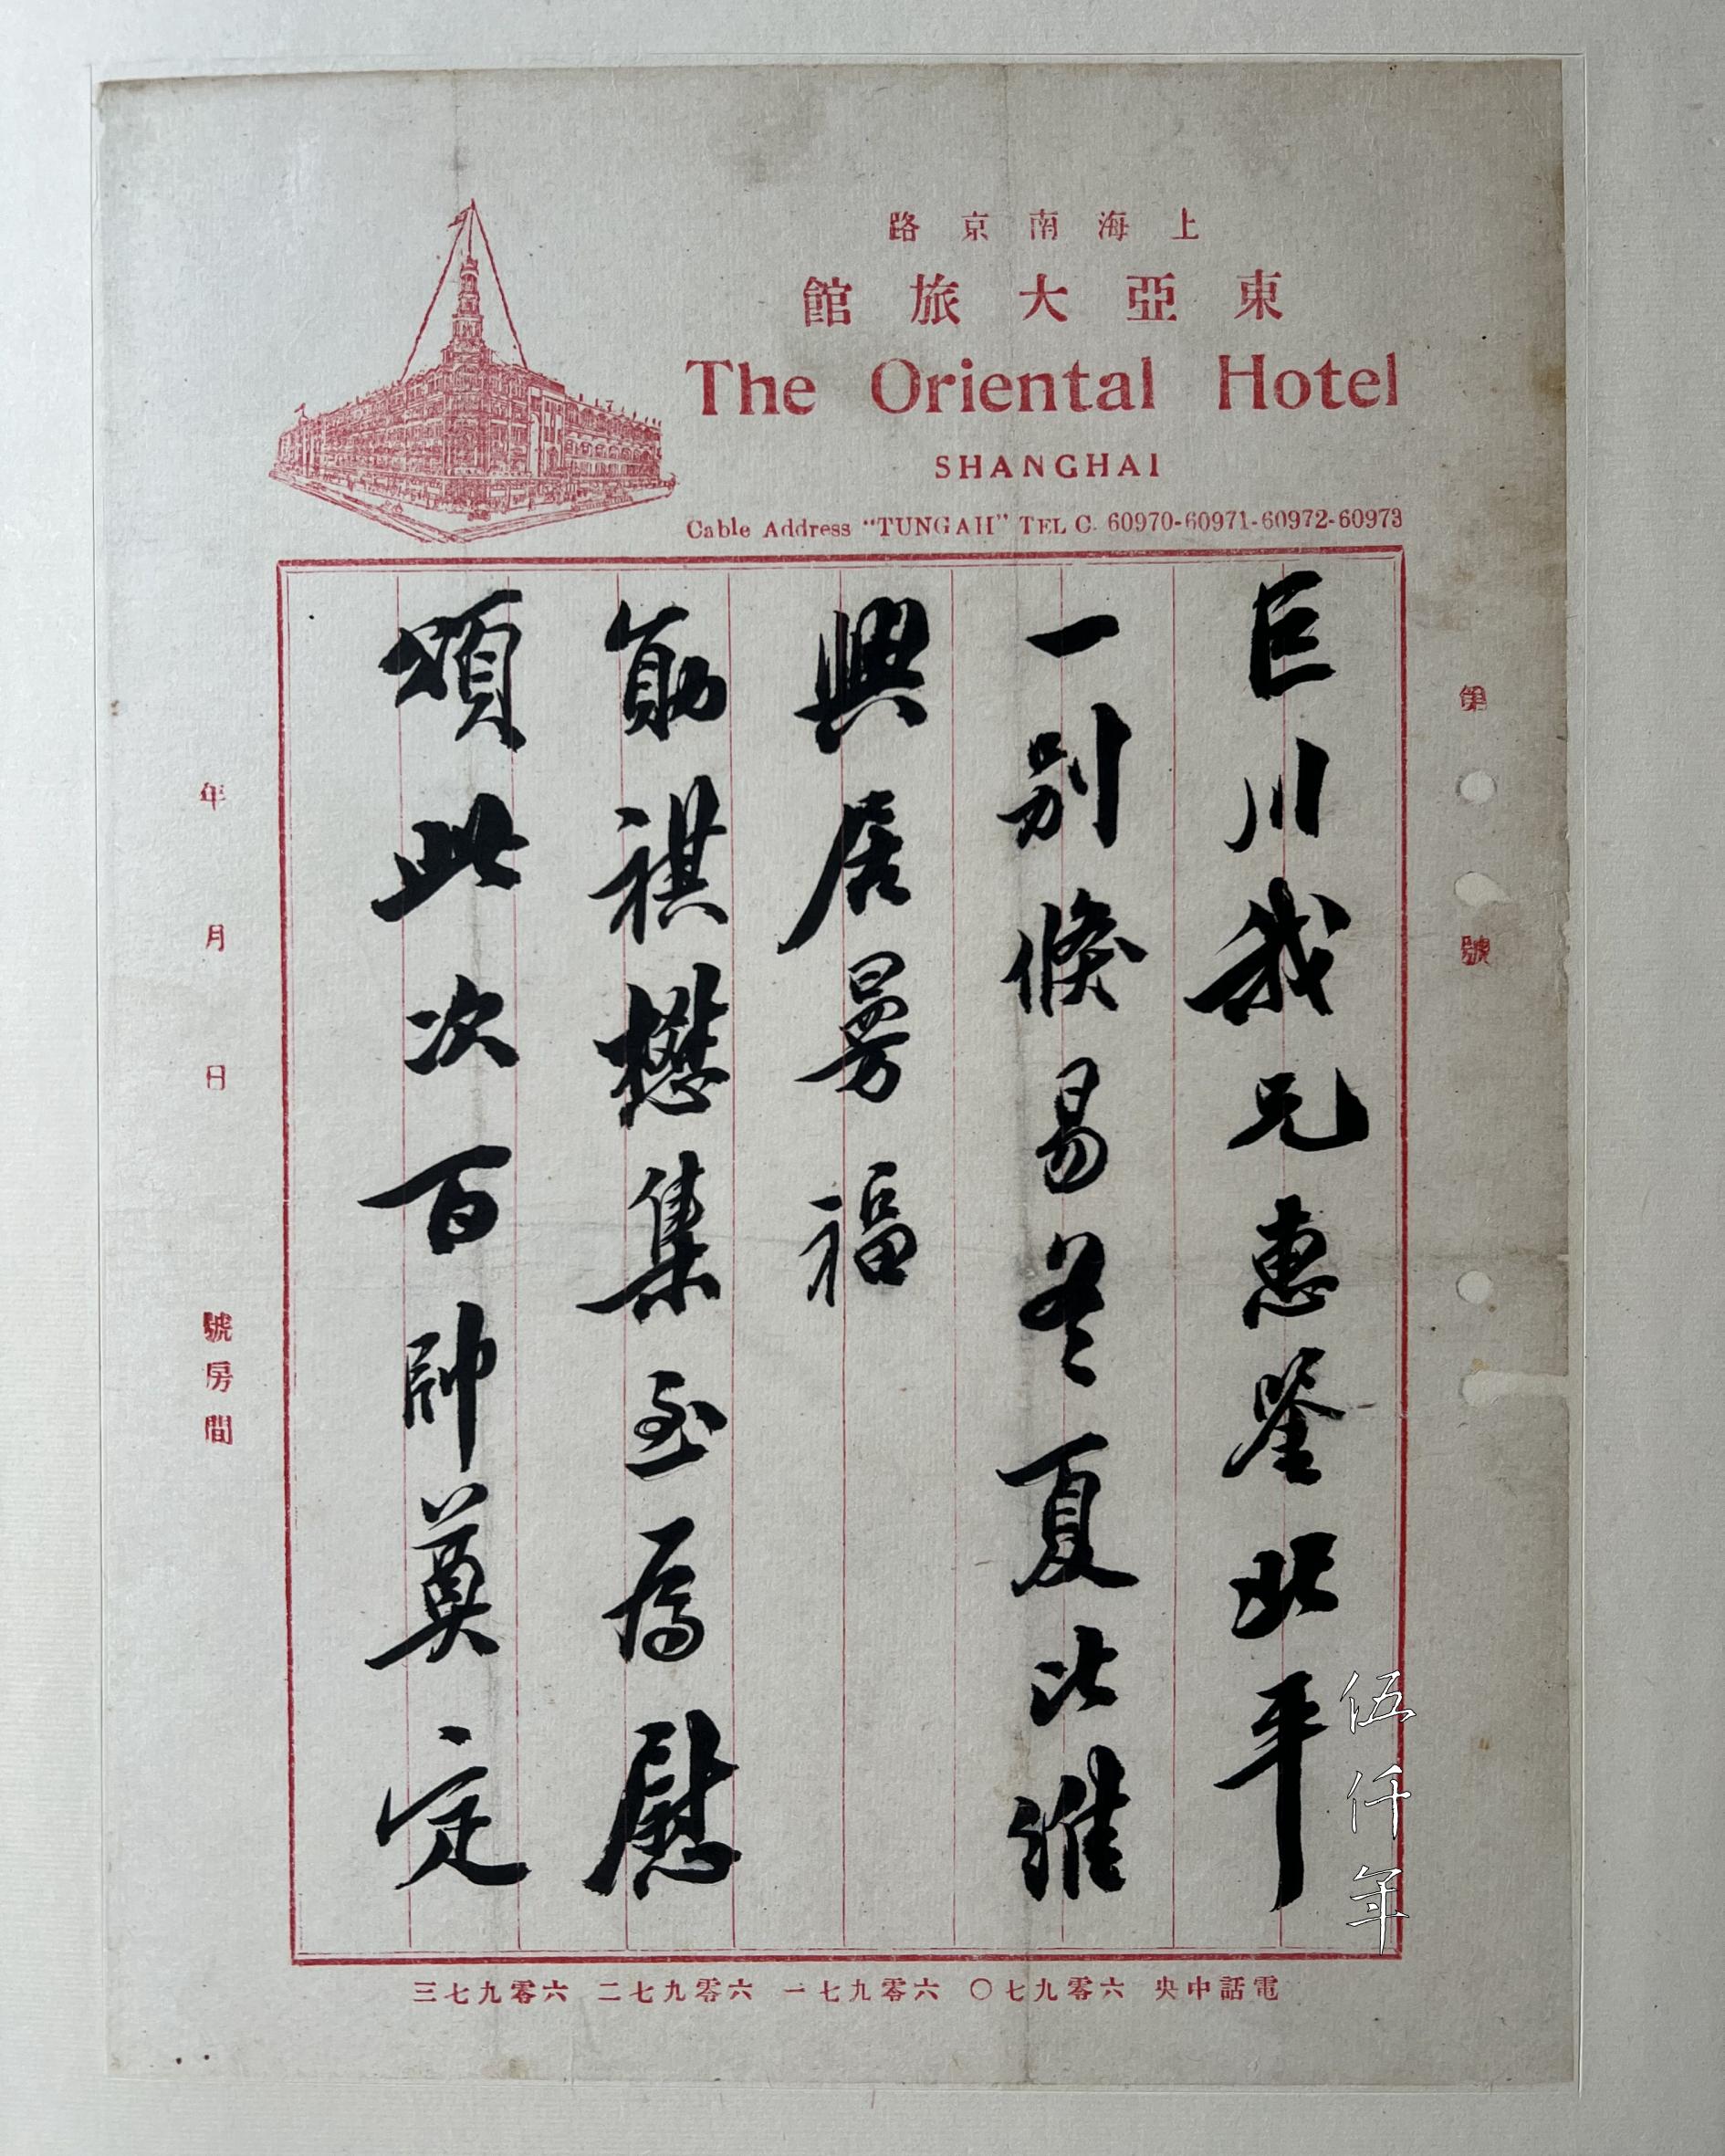 上海南京路
東亞大旅館
The Oriental Hotel
SHANGHAI
Cable Address "TUNGAH" TEL C. 60970-60971-60972-60973
第 號
巨川我兄惠鑒北平
一別倏易冬夏比維
興居曼福
勛祺懋集至為慰
頌此次百帥奠定
年 月 日 號房間
電話中央 六零九七〇 六零九七一 六零九七二 六零九七三
伍仟年